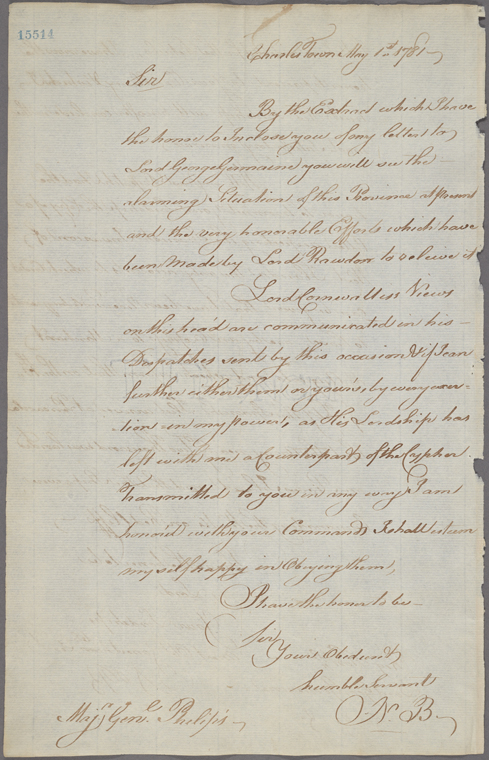 15514
Charles Towne May 1st. 1781
Sir
By the Extract which I have
the honor to Inclose you of my letter to
Lord George Germaine you will see the
alarming Situation of this Province at present
and the very honorable Efforts which have
been made by Lord Rawdon to releive it
Lord Cornwallis's Views
on this head are communicated in his
Despatches sent by this occasion & if I can
further either them or your's, by every exer-
tion in my power, as His Lordship has
left with me a Counterpart of the Cypher
Transmitted to you in any way I am
honor'd with your Commands I shall esteem
myself happy in Obeying them,
I have the honor to be
Sir
Your Obedient
humble Servant
N. B.
Majr. Genl. Phelips